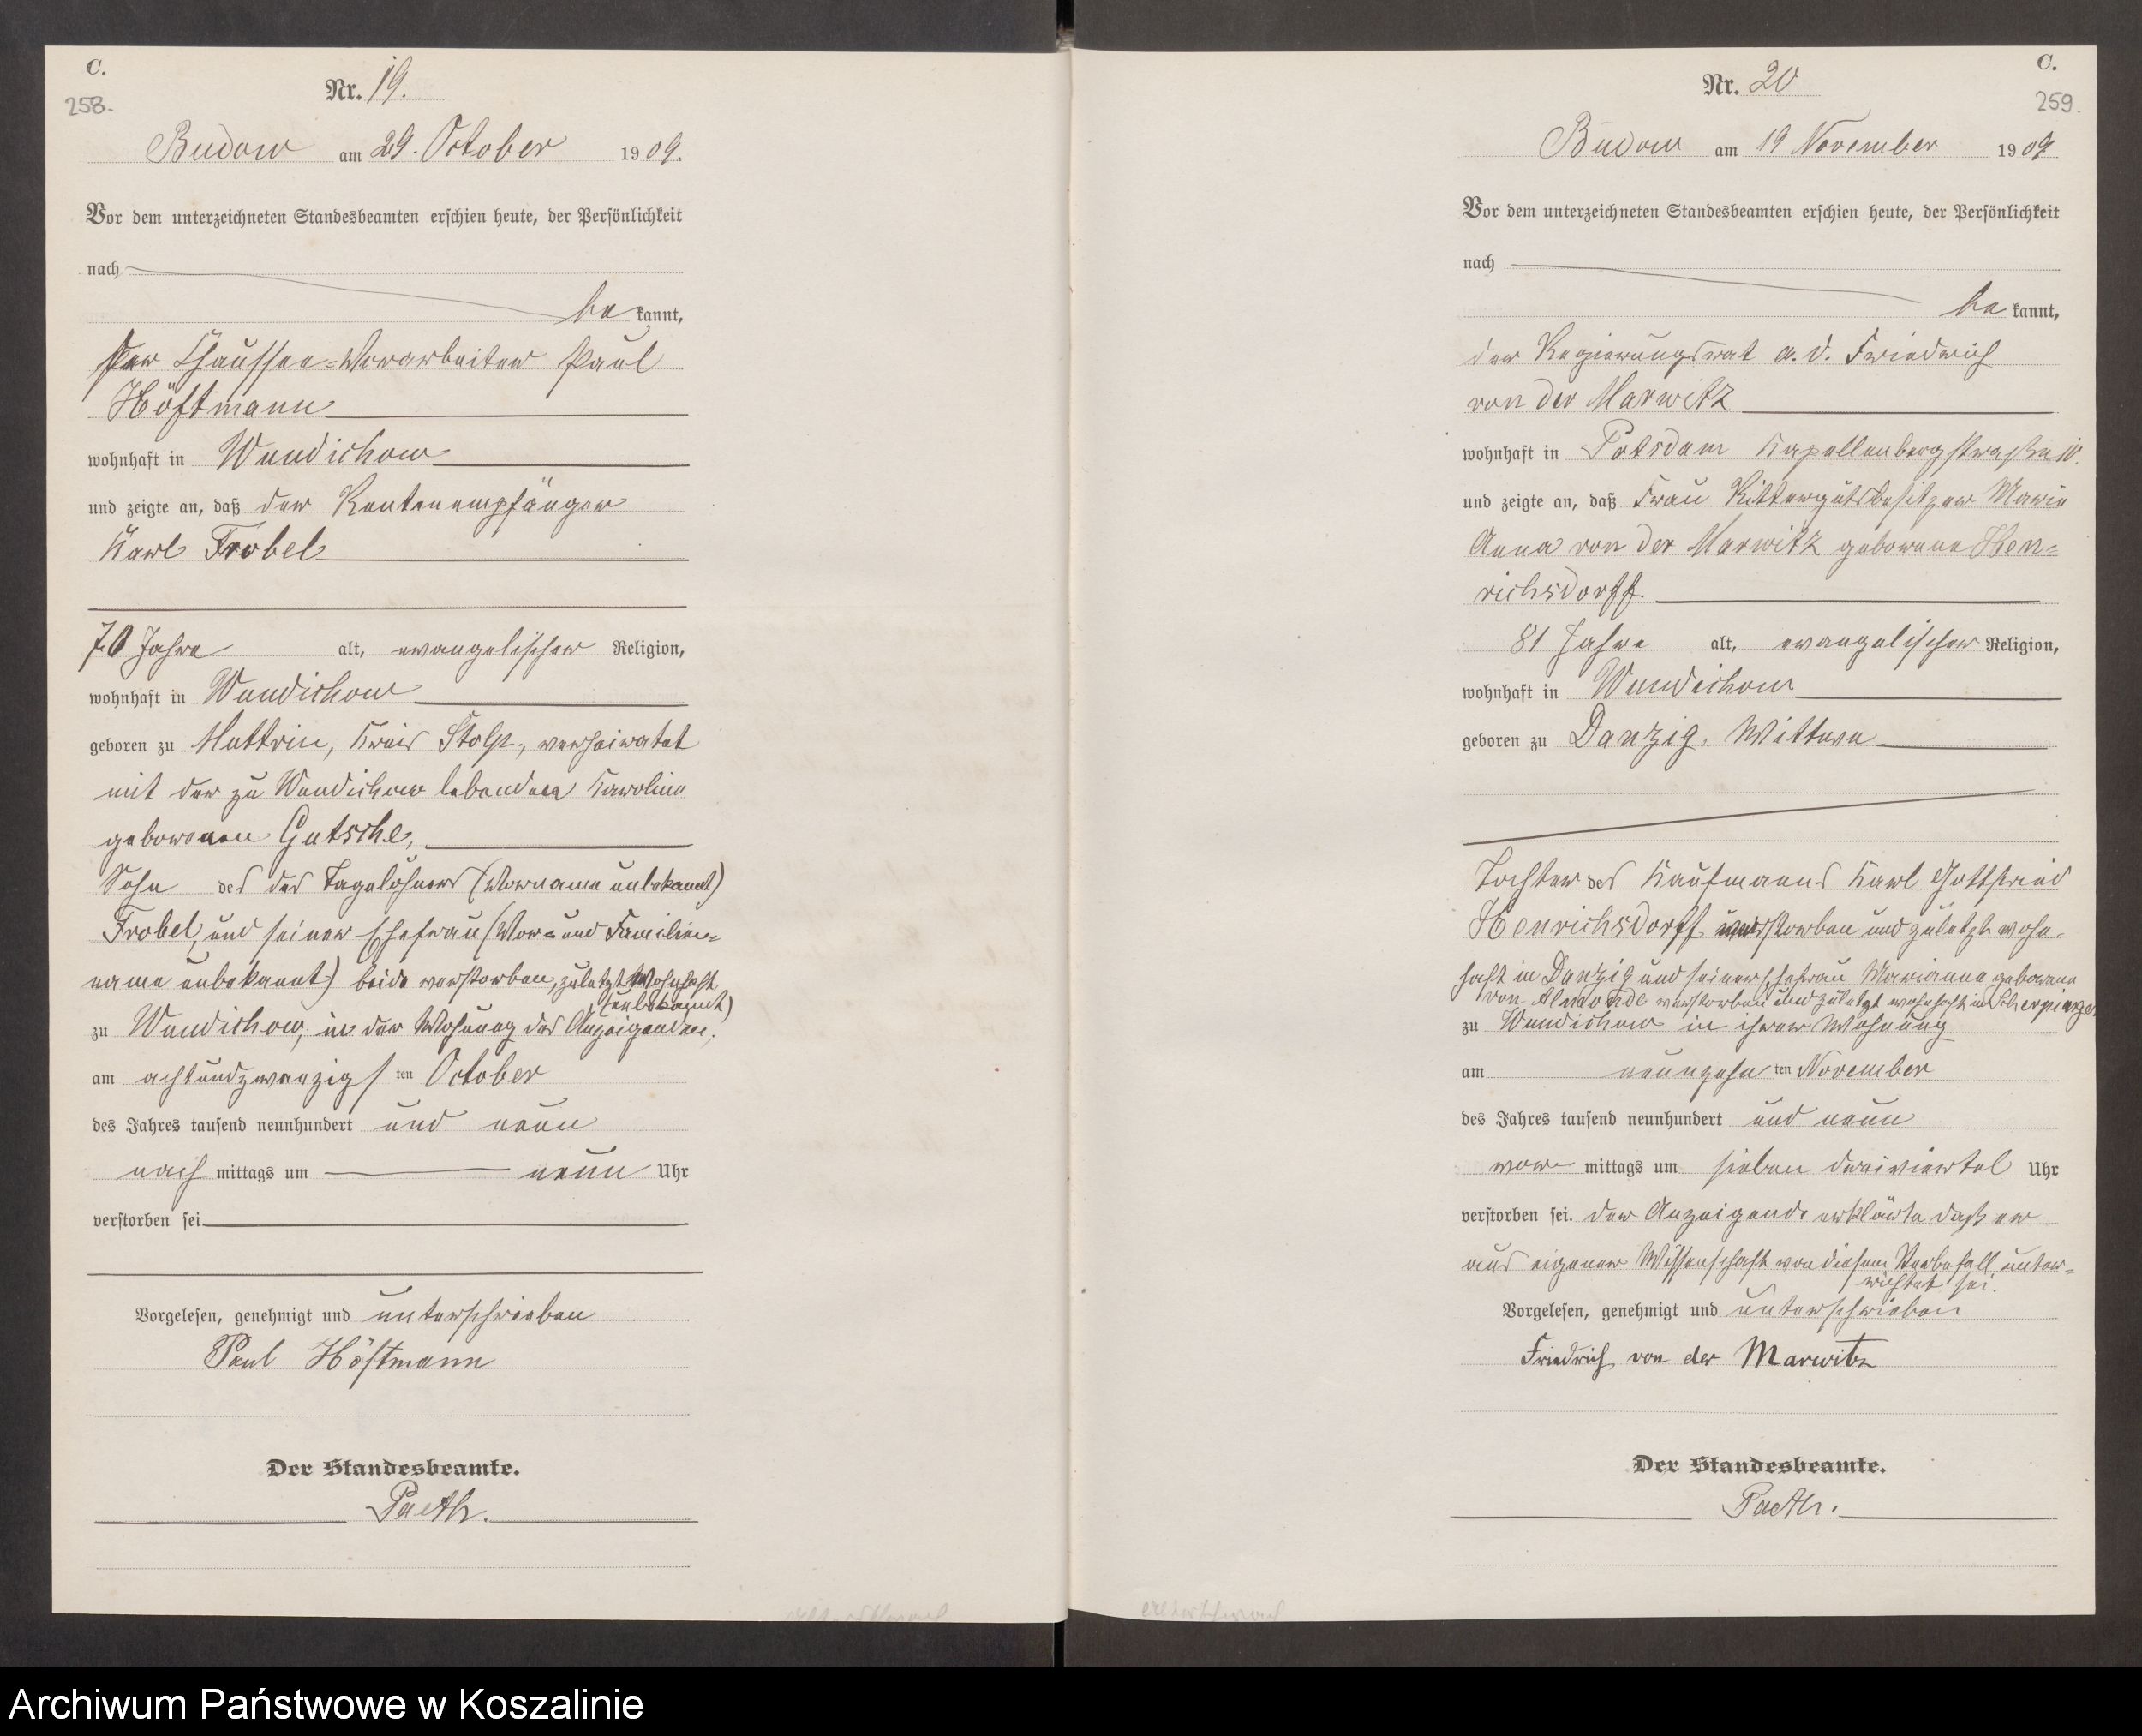 C.
258.
Nr. 19.
Budow am 29. October 1909.
Vor dem unterzeichneten Standesbeamten erschien heute, der Persönlichkeit
nach
be kannt,
der Chaussee-Vorarbeiter Paul
Höftmann
wohnhaft in Wundichow
und zeigte an, daß der Rentenempfänger
Karl Frobel
70 Jahre alt, evangelischer Religion,
wohnhaft in Wundichow
geboren zu Muttrin, Kreis Stolp, verheiratet
mit der zu Wundichow lebenden Karoline
geborenen Gutsche,
Sohn des des Tagelöhners (Vorname unbekannt)
Frobel, und seiner Ehefrau (Vor- und Familien-
name unbekannt) beide verstorben, zuletzt wohnhaft
(unbekannt)
zu Wundichow, in der Wohnung des Anzeigenden,
am achtundzwanzigsten October
des Jahres tausend neunhundert und neun
nach mittags um neun Uhr
verstorben sei.
Vorgelesen, genehmigt und unterschrieben
Paul Höftmann
Der Standesbeamte.
Paeth.
C.
259.
Nr. 20
Budow am 19 November 1909
Vor dem unterzeichneten Standesbeamten erschien heute, der Persönlichkeit
nach
be kannt,
der Regierungsrat a. D. Friedrich
von der Marwitz
wohnhaft in Potsdam Kapellenbergstraße
und zeigte an, daß Frau Rittergutsbesitzer Marie
Anna von der Marwitz geborene Hen-
richsdorff.
81 Jahre alt, evangelischer Religion,
wohnhaft in Wundichow
geboren zu Danzig, Wittwe
Tochter des Kaufmanns Karl Gottfried
Henrichsdorff verstorben und zuletzt wohn-
haft in Danzig und seiner Ehefrau Marianne geborene
von Almonde verstorben und zuletzt wohnhaft in
zu Wundichow in ihrer Wohnung
am neunzehnten November
des Jahres tausend neunhundert und neun
vor mittags um sieben dreiviertel Uhr
verstorben sei. Der Anzeigende erklärte daß er
aus eigener Wissenschaft von diesem Sterbefall unter-
richtet sei.
Vorgelesen, genehmigt und unterschrieben
Friedrich von der Marwitz
Der Standesbeamte.
Paeth.
Archiwum Państwowe w Koszalinie